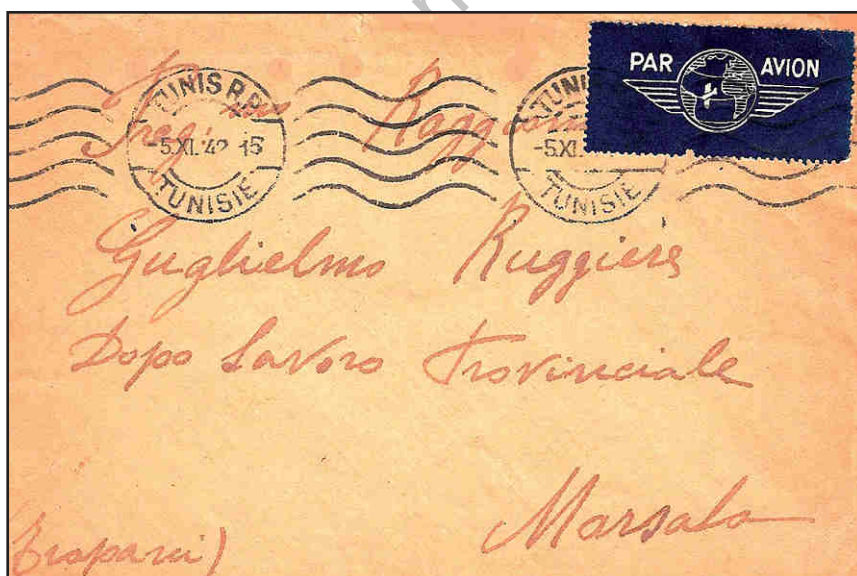 PAR AVION
TUNIS R.P.
-5.XI.42 15
TUNISIE
TUNIS
-5.XI.
TUNISIE
Guglielmo Ruggiera
Dopo Lavoro Provinciale
Marsala
(Trapani)